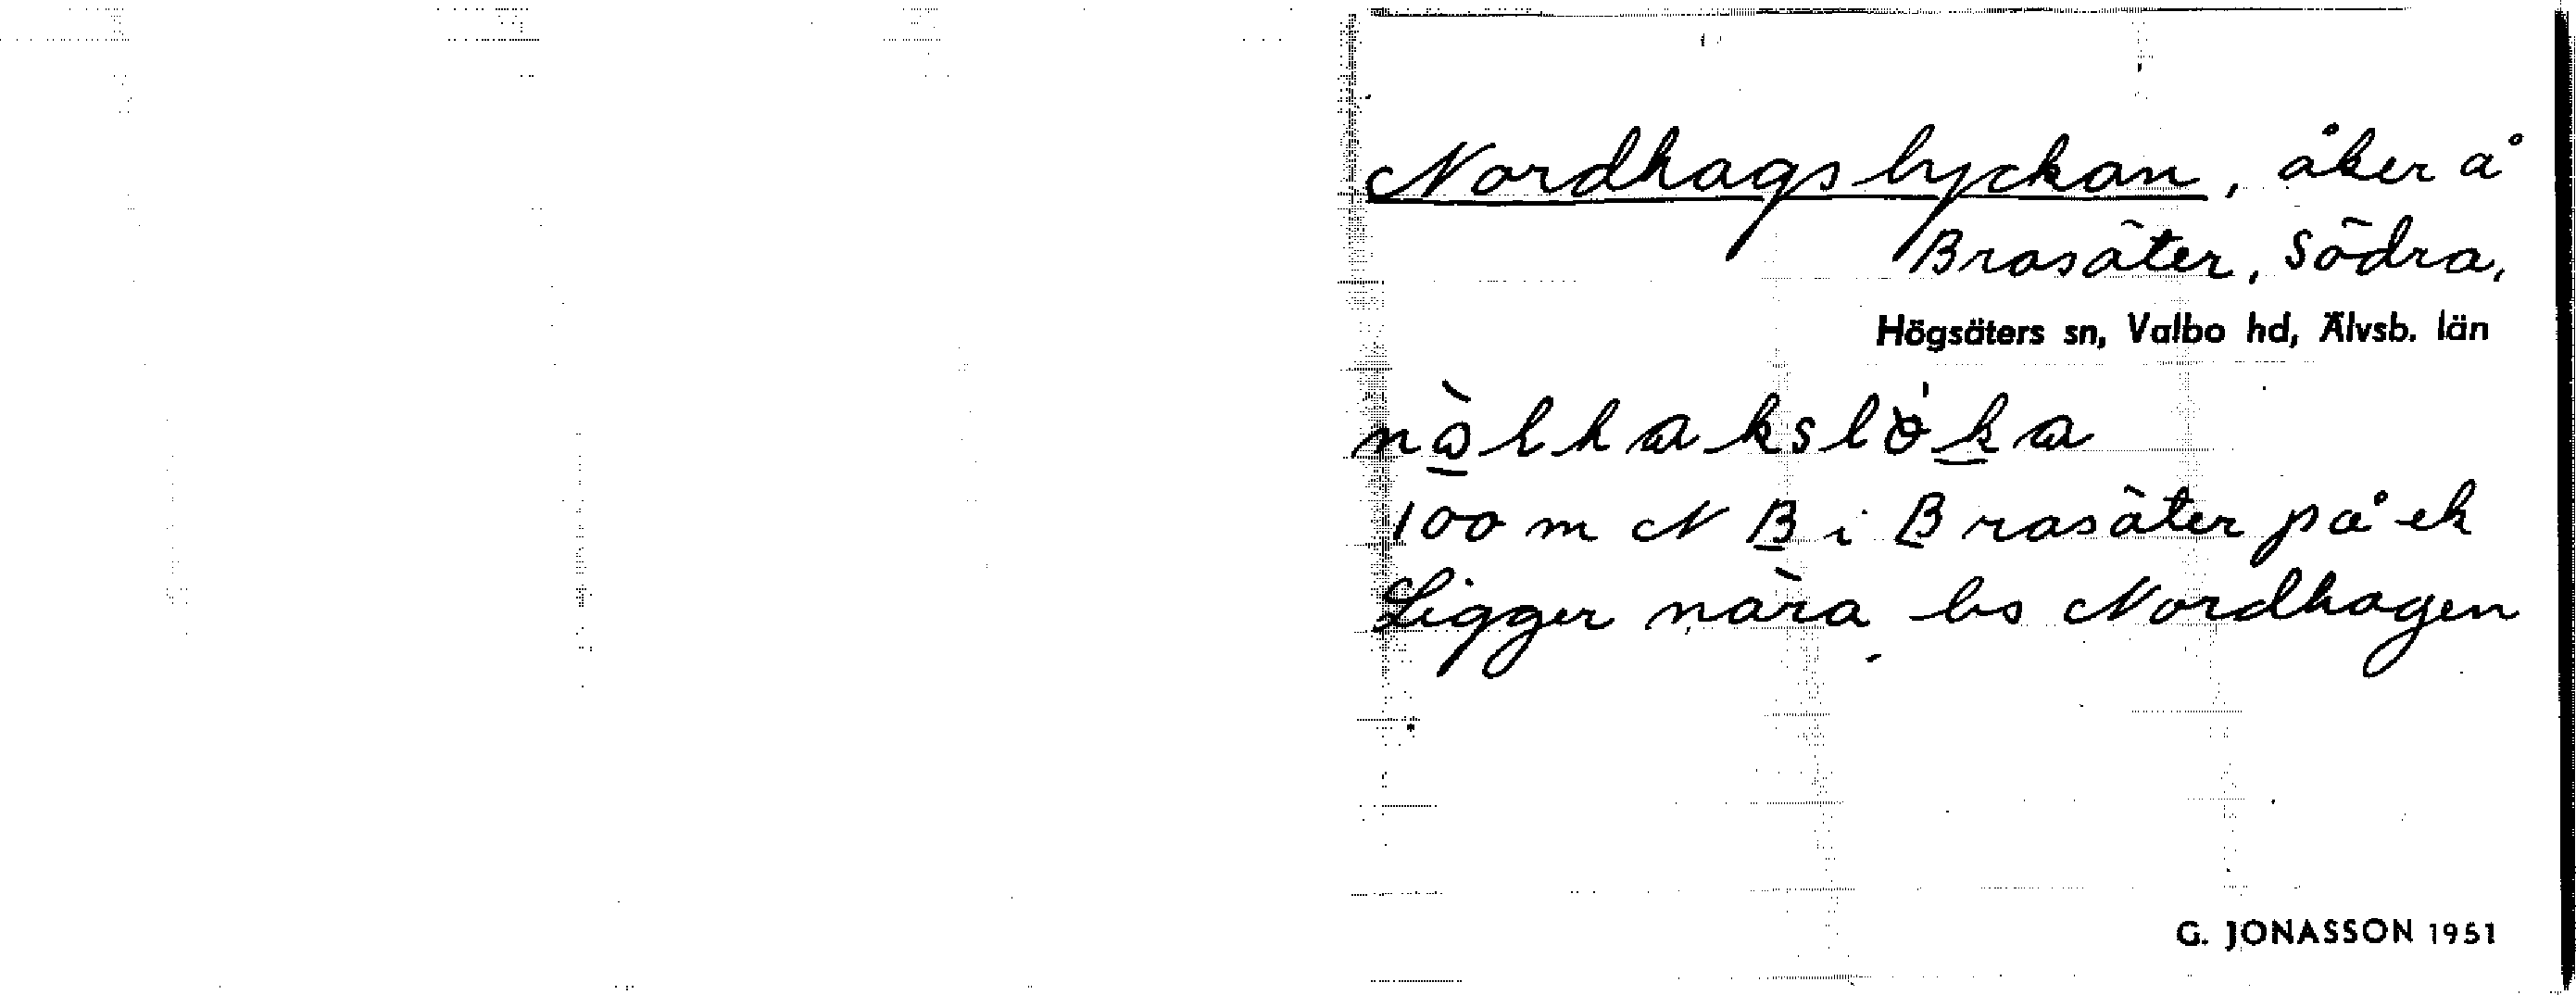 Nordhagslyckan, åker å
Brasäter, Södra,
Högsäters sn, Valbo hd, Älvsb. län
100 m N B i Brasäter på ek
Ligger nära bs Nordhagen
G. JONASSON 1951